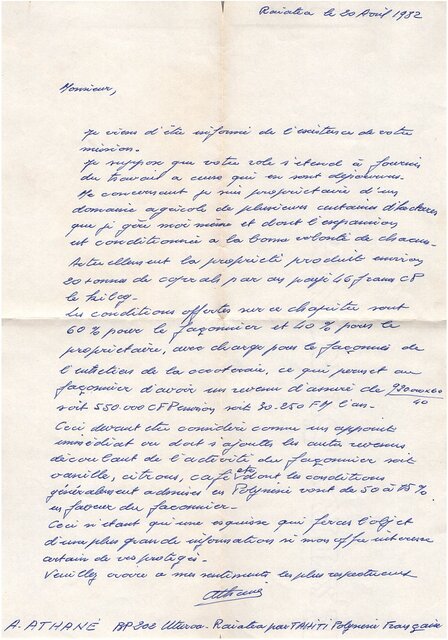 Raiatea le 20 Avril 1982
Monsieur,
Je viens d'être informé de l'existence de votre
mission.
Je suppose que votre role s'etend à fournir
du travail a ceux qui en sont dépourvus.
Me concernant je suis propriétaire d'un
domaine agricole de plusieurs centaines d'hectares
que je gère moi même et dont l'expansion
est conditionnée a la bonne volonté de chacun.
Actuellement la propriété produit environ
20 tonnes de coprah par an payé 46 francs CP
le kilog.
Les conditions offertes sur ce chapitre sont
60% pour le façonnier et 40% pour le
propriétaire, avec charge pour le façonnier de
l'entretien de la cocoteraie, ce qui permet au
façonnier d'avoir un revenu d'assuré de 920 000x60
40
soit 550 000 CFP environ soit 30.250 FM l'an.
Ceci devant être considéré comme un appoint
immédiat ou doit s'ajouter les autres revenus
découlant de l'activité du façonnier soit
vanille, citrons, café etc dont les conditions
généralement admises en Polynésie vont de 50 à 75%
en faveur du façonnier.
Ceci n'étant qu'une esquisse qui feras l'objet
d'une plus grande informations si mon offre interesse
certain de vos protégés.
Veuillez croire a mes sentiments les plus respectueux
A. ATHANÉ BP 202 Uturoa - Raiatea par TAHITI Polynésie Française